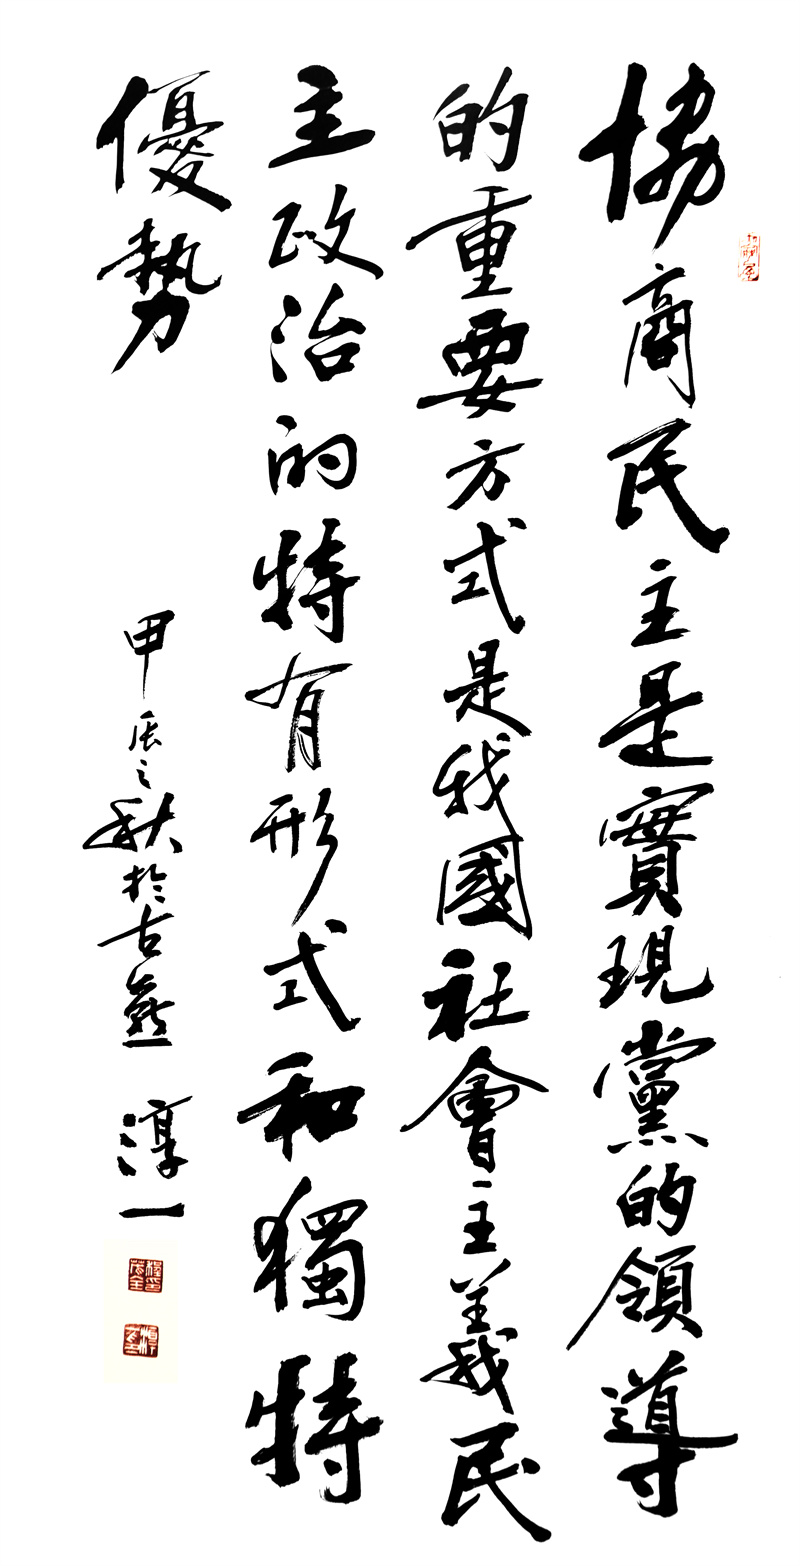 協商民主是實現黨的領導
的重要方式是我國社會主義民
主政治的特有形式和獨特
優勢
甲辰之秋於古燕 淳一